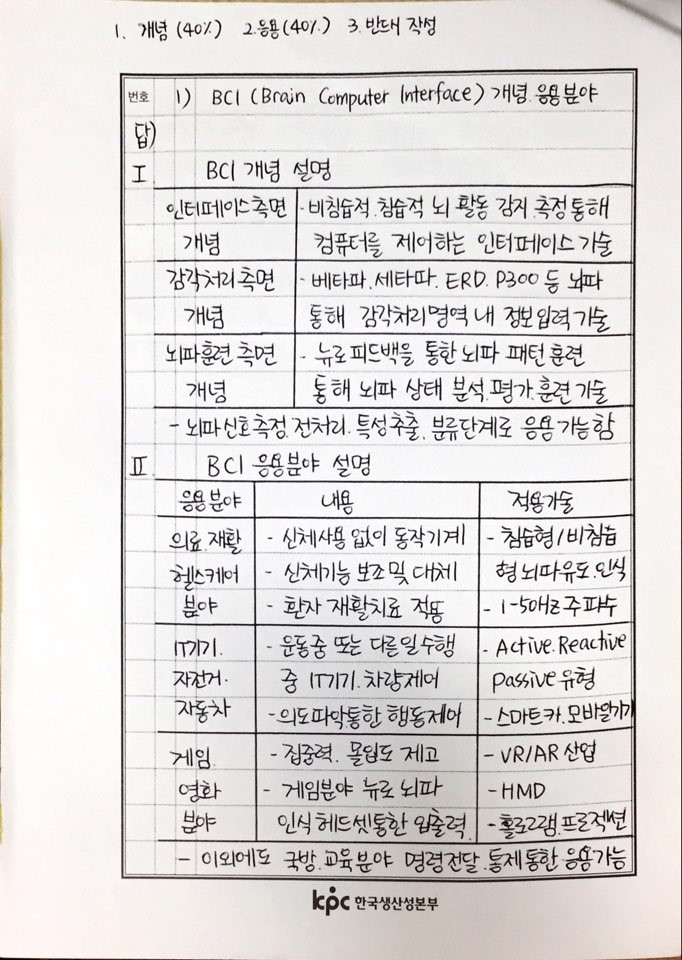 1. 개념 (40%) 2.응용(40%) 3. 반드시 작성
번호 1) BCI (Brain Computer Interface) 개념.응용분야
답)
I BCI 개념 설명
인터페이스측면 - 비침습적.침습적 뇌 활동 감지.측정통해
개념 컴퓨터를 제어하는 인터페이스 기술
감각처리측면 - 베타파.세타파. ERD. P300 등 뇌파
개념 통해 감각처리영역 내 정보입력기술
뇌파훈련 측면 - 뉴로피드백을 통한 뇌파 패턴 훈련
개념 통해 뇌파 상태 분석.평가.훈련 기술
- 뇌파신호측정.전처리. 특성추출. 분류단계로 응용가능함
II BCI 응용분야 설명
응용분야 내용 적용기술
의료.재활 - 신체사용 없이 동작기계 - 침습형/비침습
헬스케어 - 신체기능 보조 및 대체 형 뇌파유도.인식
분야 - 환자 재활치료 적용 - 1-50Hz 주파수
IT기기. - 운동중 또는 다른일수행 - Active.Reactive
자전거. 중 IT기기.차량제어 Passive 유형
자동차 - 의도파악통한 행동제어 - 스마트카.모바일기기
게임. - 집중력. 몰입도 제고 - VR/AR 산업
영화 - 게임분야 뉴로 뇌파 - HMD
분야 인식 헤드셋통한 입출력 - 홀로그램.프로젝션
- 이외에도 국방.교육분야 명령전달.통제통한 응용가능
kpc 한국생산성본부